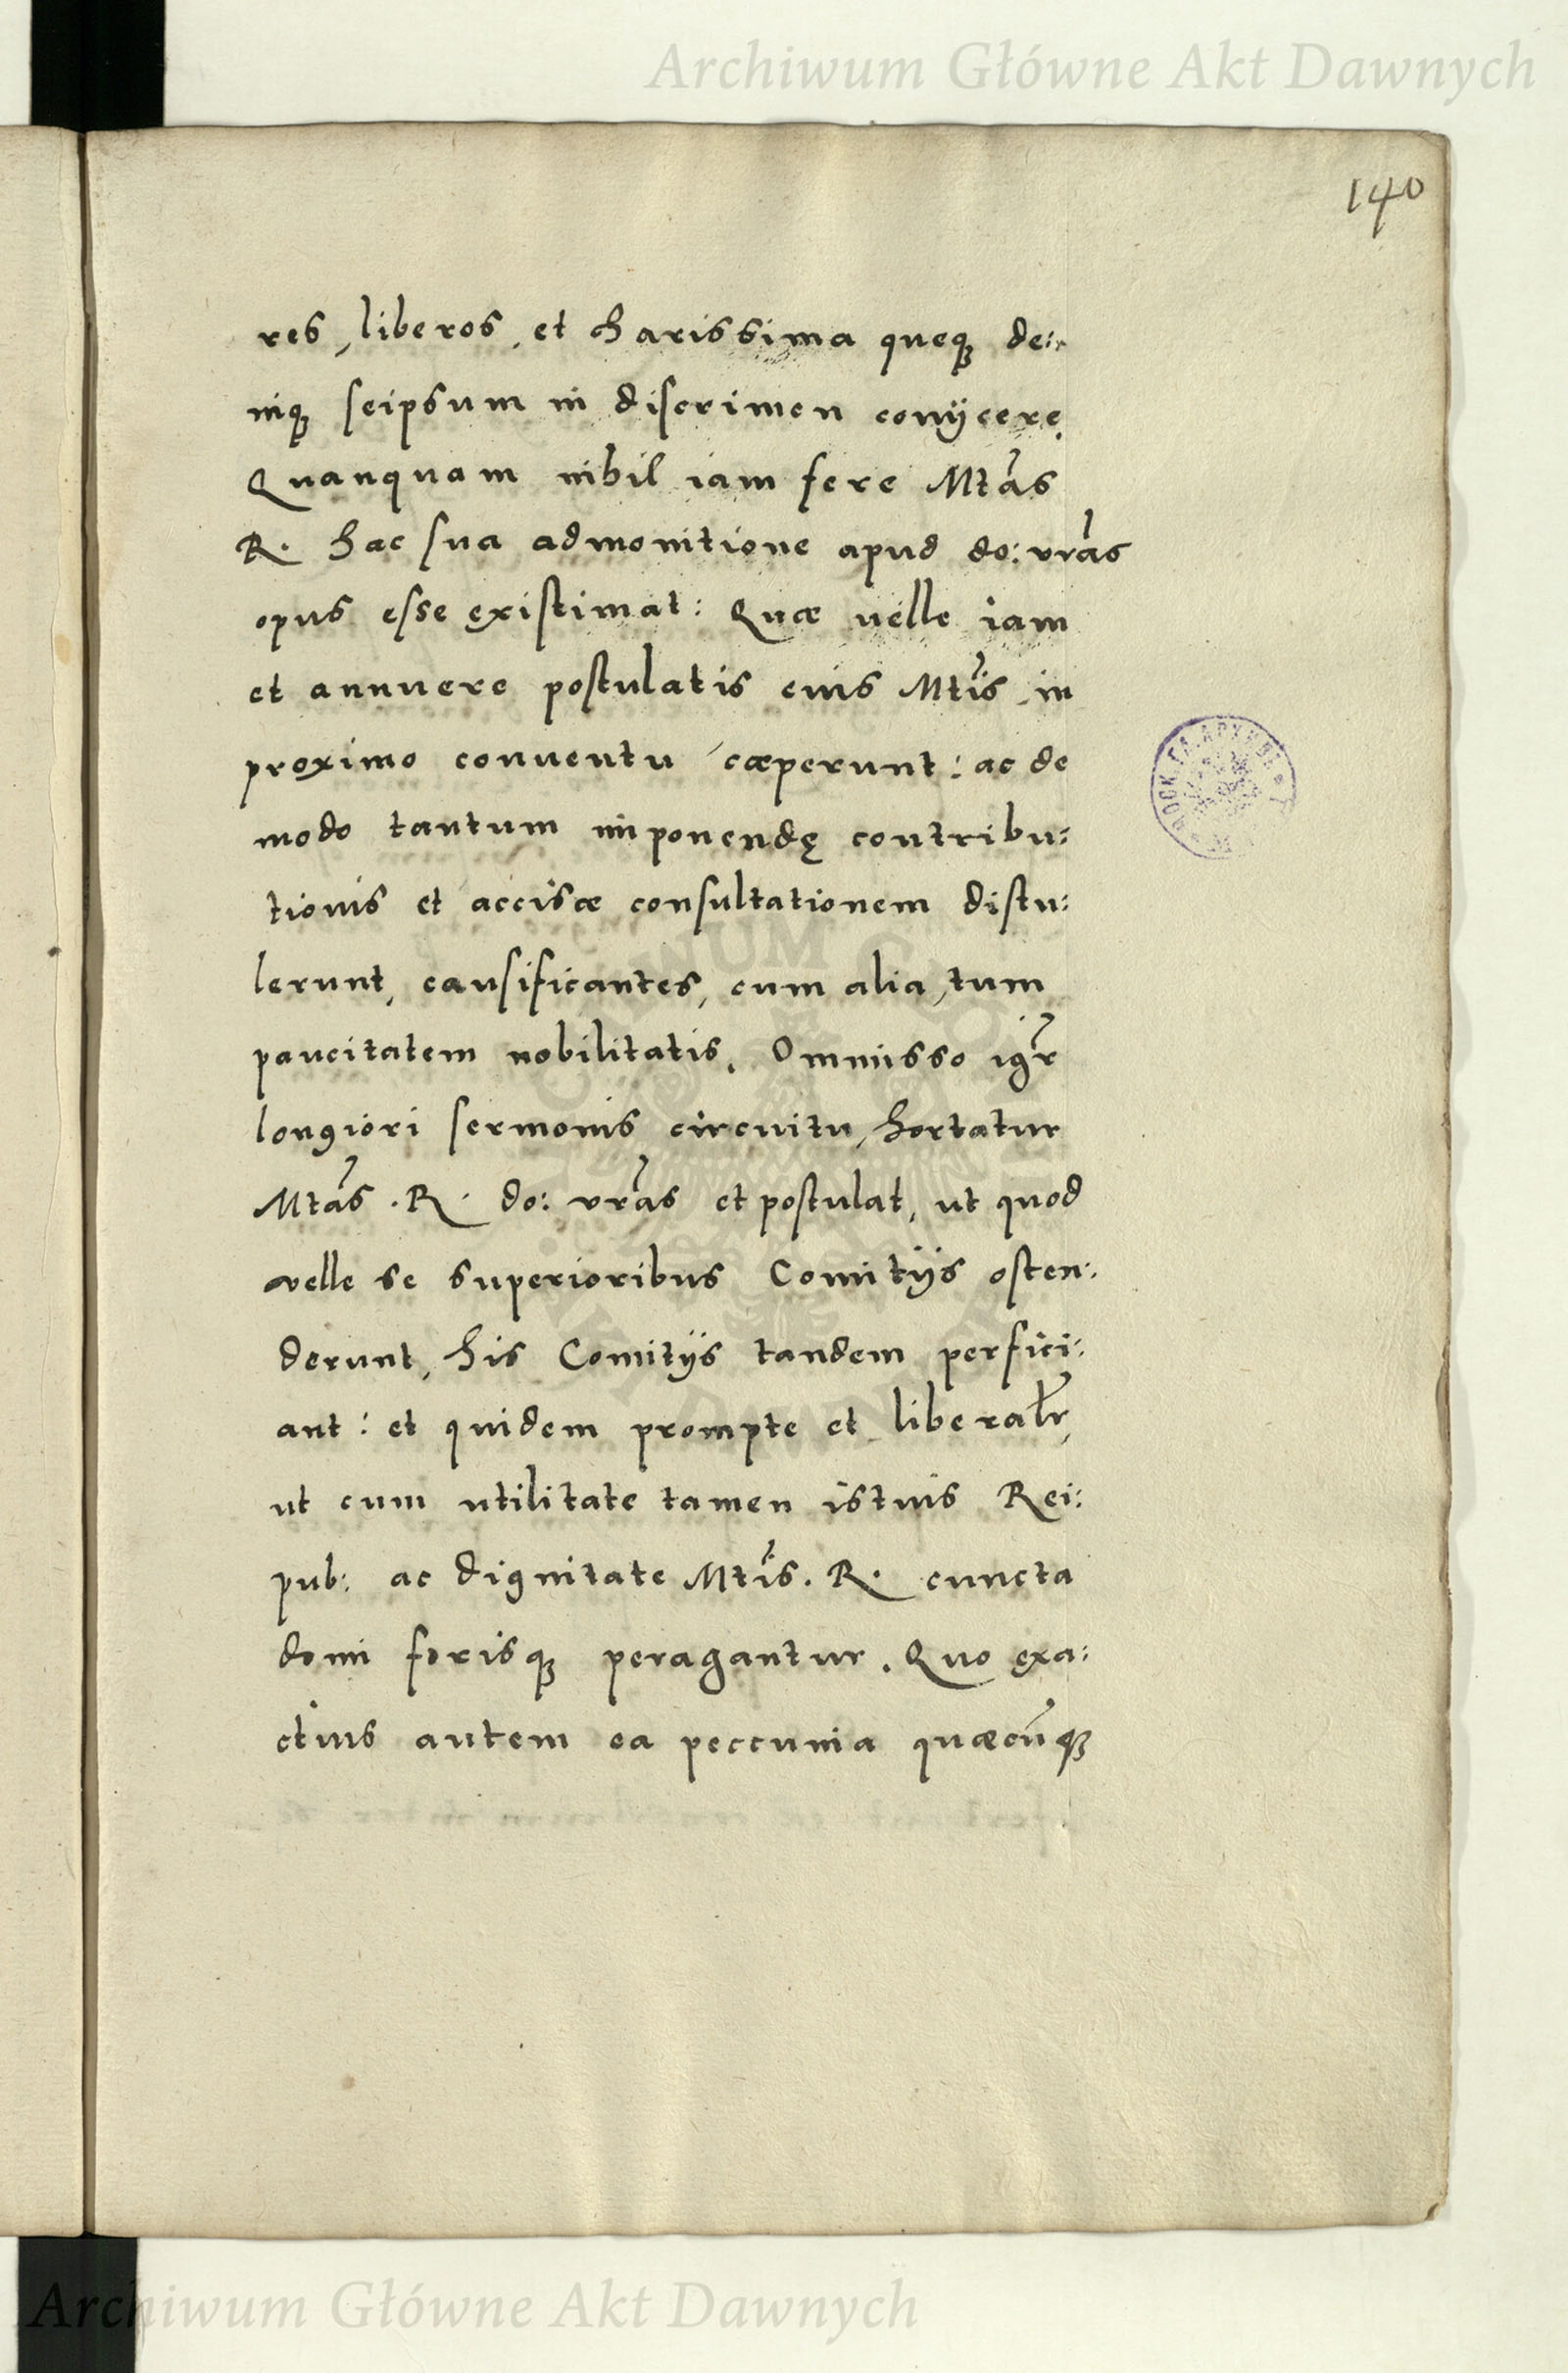 Archiwum Główne Akt Dawnych
140
res, liberos, et charissima queq; de:
niq; seipsum in discrimen conijcere.
Quanquam nihil iam fere Mtas
R. hac sua admonitione apud do: vras
opus esse existimat: Quæ uelle iam
et annuere postulatis eius Mtis in
proximo conuentu cæperunt: ac de
modo tantum imponendę contribu:
tionis et accisæ consultationem distu:
lerunt, causificantes, cum alia, tum
paucitatem nobilitatis. Ommisso igr
longiori sermonis circuitu, hortatur
Mtas .R. do: vras et postulat, ut quod
velle se superioribus Comitijs osten:
derunt, his Comitijs tandem perfici:
ant: et quidem prompte et liberalr,
ut cum utilitate tamen istius Rei:
pub: ac dignitate Mtis. R. cuncta
domi forisq; peragantur. Quo exa:
ctius autem ea peccunia quæcūq;
Archiwum Główne Akt Dawnych